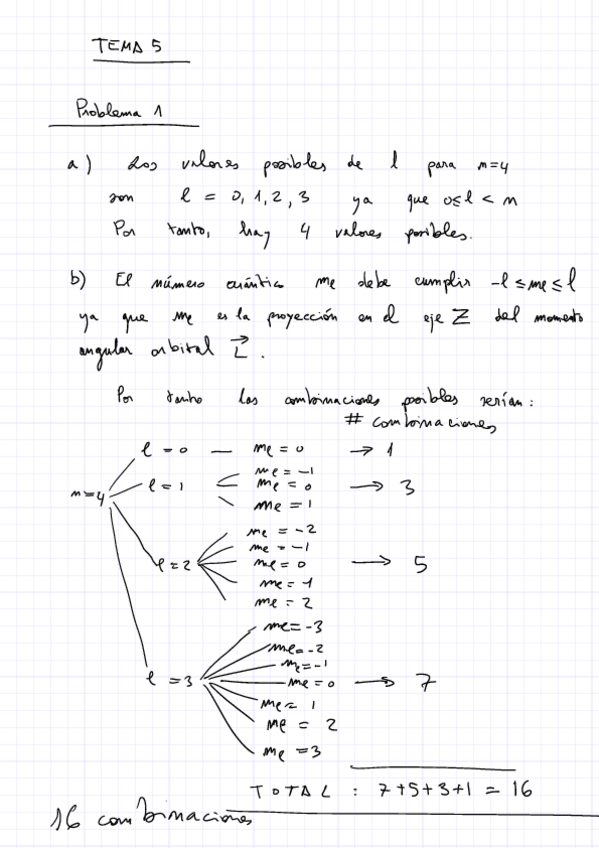 TEMA 5
Problema 1
a) Los valores posibles de l para n=4
son l = 0, 1, 2, 3 ya que 0≤l < n
Por tanto, hay 4 valores posibles.
b) El número cuántico me debe cumplir -l ≤ me ≤ l
ya que me es la proyección en el eje Z del momento
angular orbital L⃗.
Por tanto las combinaciones posibles serían:
# combinaciones
l = 0 — me = 0 → 1
me = -1
n=4 l = 1 me = 0 → 3
me = 1
me = -2
me = -1
l = 2 me = 0 → 5
me = 1
me = 2
me = -3
me = -2
me = -1
l = 3 me = 0 → 7
me = 1
me = 2
me = 3
TOTAL : 7+5+3+1 = 16
16 combinaciones